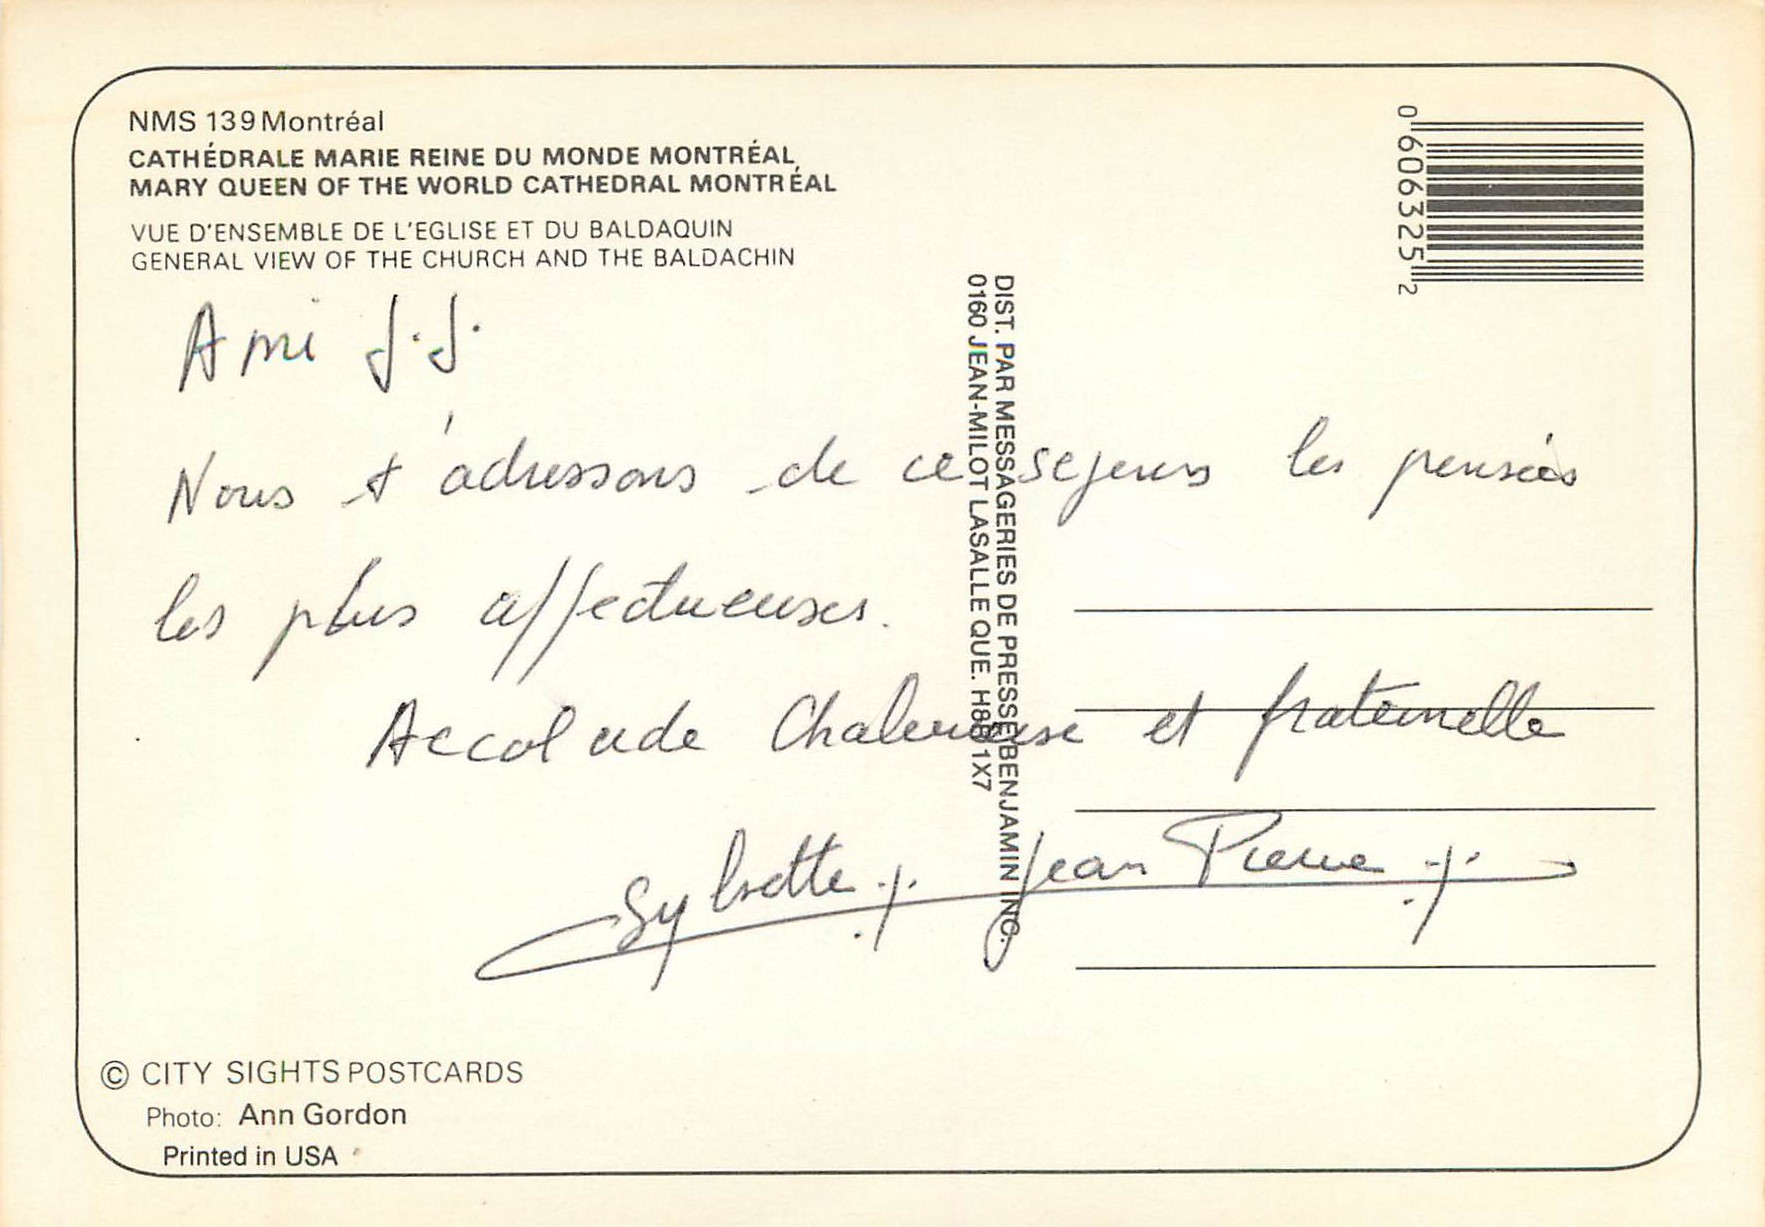 NMS 139 Montréal
CATHÉDRALE MARIE REINE DU MONDE MONTRÉAL,
MARY QUEEN OF THE WORLD CATHEDRAL MONTRÉAL
VUE D'ENSEMBLE DE L'EGLISE ET DU BALDAQUIN
GENERAL VIEW OF THE CHURCH AND THE BALDACHIN
0 6063252 2
DIST. PAR MESSAGERIES DE PRESSE BENJAMIN INC.
0160 JEAN-MILOT LASALLE QUE. H8R 1X7
Ami J.J.
Nous t'adressons de ce sejours les pensées
les plus affectueuses.
Accolade Chaleureuse et fraternelle
Sylvette Jean Pierre
© CITY SIGHTS POSTCARDS
Photo: Ann Gordon
Printed in USA